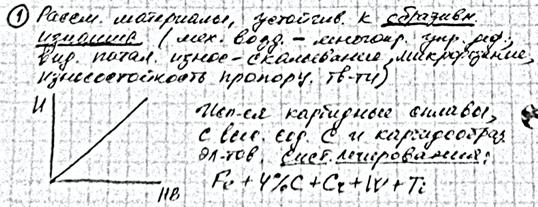 ① Рассм. материалы, устойчив. к абразивн.
износу (мех. возд. – многокр. упр. деф.,
вид патал. износ – скалывание, микрорезание,
износостойкость пропорц. тв-ти)
И
НВ
Исп-ся карбидные сплавы,
с выс. сод. С и карбидообраз.
эл-тов. Сист. легирования:
Fe + 4%C + Cr + W + Ti